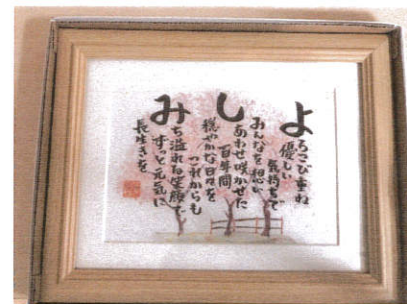 よろこび重ね
優しい
気持ちで
みんなを想い
しあわせ咲かせた
百年間
穏やかな日々を
これからも
みち溢れる笑顔で
ずっと元気に
長生きを